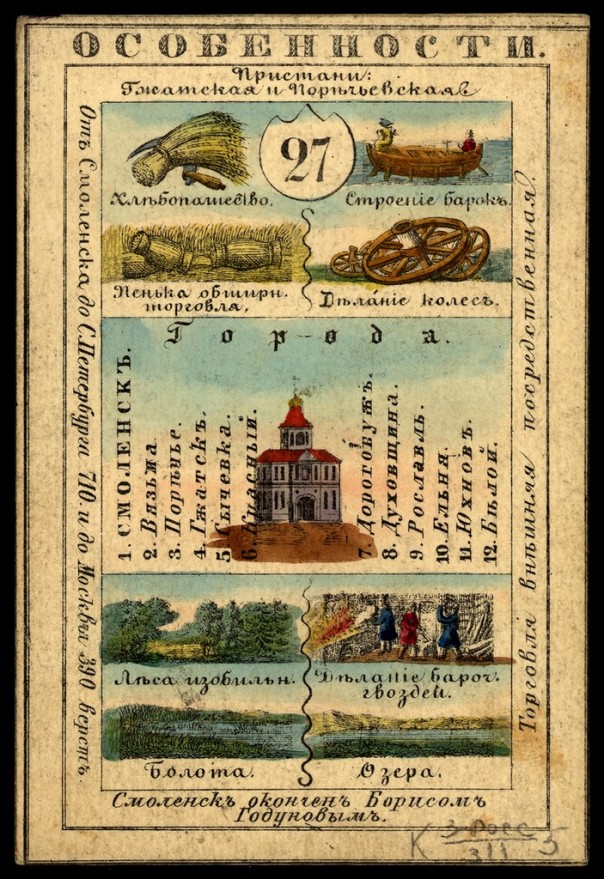 ОСОБЕННОСТИ.
Пристани:
Гжатская и Порѣчьевская
27
Хлѣбопашество.
Строеніе барокъ.
Пенька обширн.
торговля,
Дѣланіе колесъ.
Города.
1. СМОЛЕНСКЪ.
2. Вязьма
3. Порѣчье.
4. Гжатскъ.
5. Сычевка.
6. Красный.
7. Дорогобужъ.
8. Духовщина.
9. Рославль.
10. Ельня.
11. Юхновъ.
12. Бѣлой.
Лѣса изобильн.
Дѣланіе бароч.
гвоздей.
Болота.
Озера.
Смоленскъ оконченъ Борисомъ
Годуновымъ.
Отъ Смоленска до С.Петербурга 710. и до Москвы 390 верстъ.
Торговля внѣшняя посредственная.
К 3-Росс 5
311